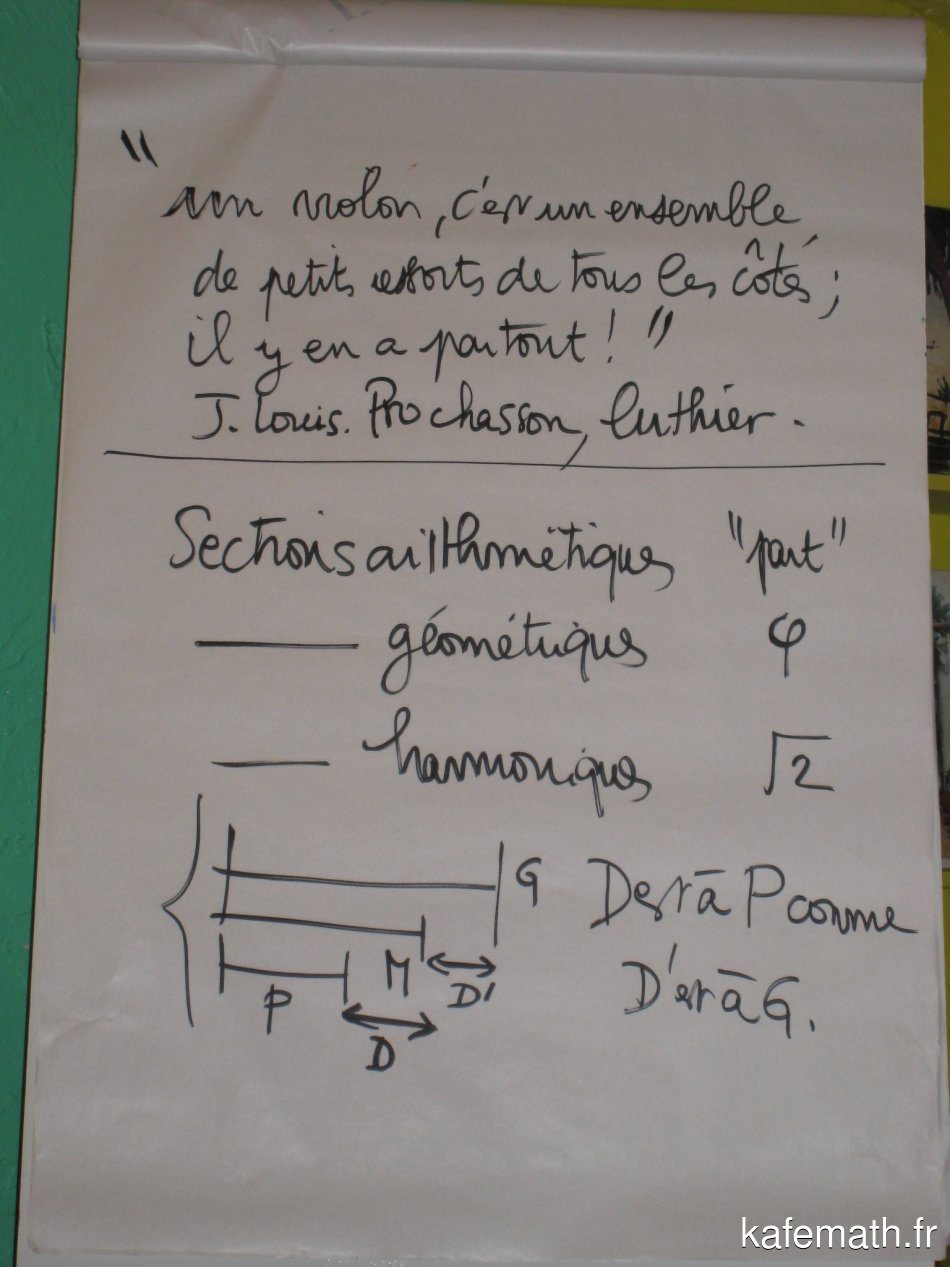 "un violon, c'est un ensemble
de petits ressorts de tous les côtés;
il y en a partout!"
J. Louis. Prochasson, luthier.
Sections arithmétiques "part"
— géométriques φ
— harmoniques √2
G
P
M
D'
D
D est à P comme
D' est à G.
kafemath.fr